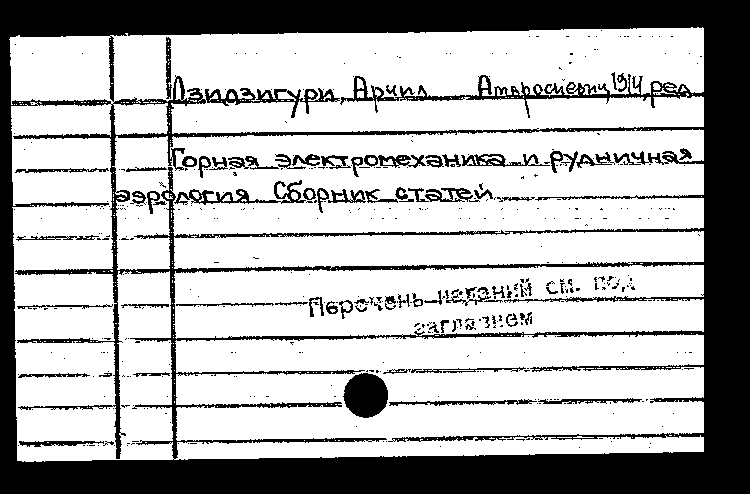 Дзидзигури, Арчил Амвросиевич, 1914, ред.
Горная электромеханика и рудничная
аэрология Сборник статей
Перечень изданий см. под
заглавием